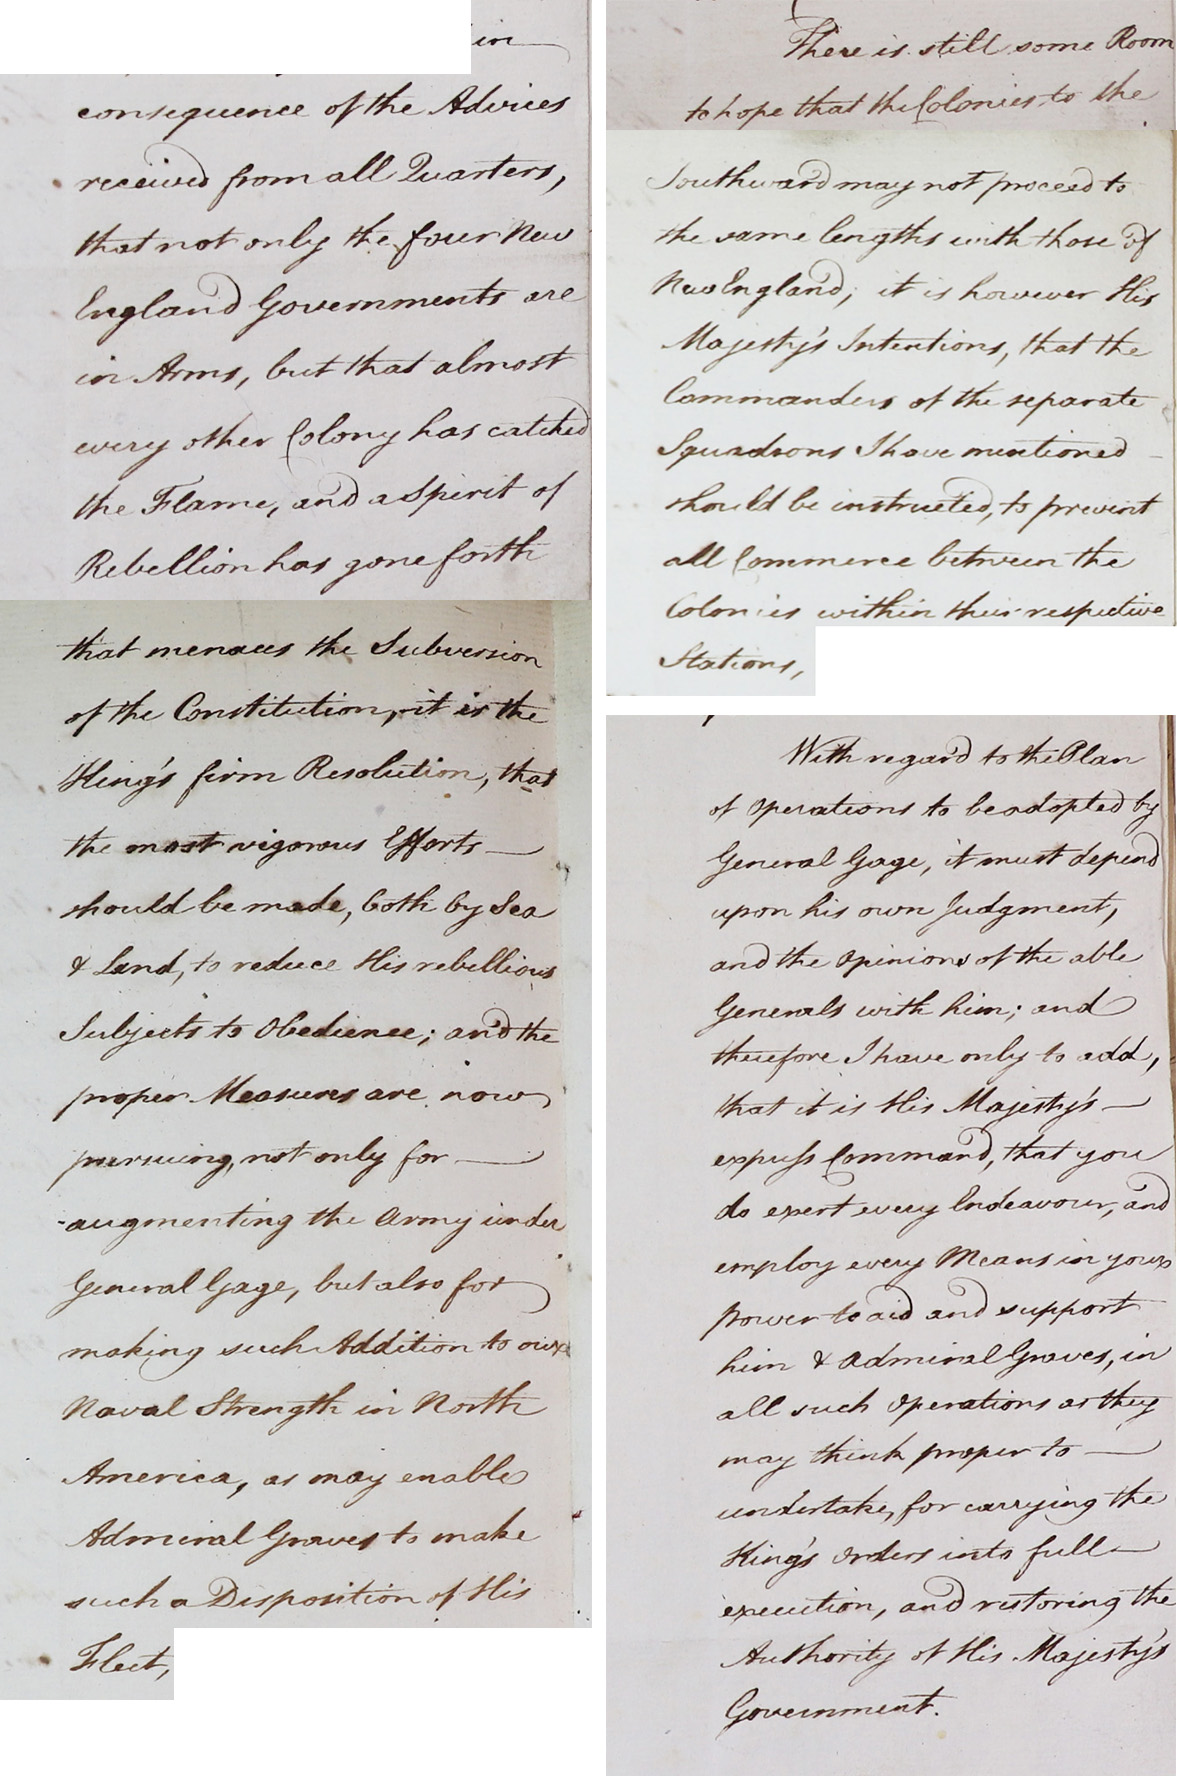 in
consequence of the Advices
received from all Quarters,
that not only the four New
England Governments are
in Arms, but that almost
every other Colony has catched
the Flame, and a Spirit of
Rebellion has gone forth
that menaces the Subversion
of the Constitution, it is the
King's firm Resolution, that
the most vigorous Efforts
should be made, both by Sea
& Land, to reduce His rebellious
Subjects to Obedience; and the
proper Measures are now
pursuing, not only for
augmenting the Army under
General Gage, but also for
making such Addition to our
Naval Strength in North
America, as may enable
Admiral Graves to make
such a Disposition of His
Fleet,
There is still some Room
to hope that the Colonies to the
Southward may not proceed to
the same lengths with those of
New England; it is however His
Majesty's Intentions, that the
Commanders of the separate
Squadrons I have mentioned
should be instructed, to prevent
all Commerce between the
Colonies within their respective
Stations,
With regard to the Plan
of Operations to be adopted by
General Gage, it must depend
upon his own Judgment,
and the Opinions of the able
Generals with him; and
therefore I have only to add,
that it is His Majesty's
express Command, that you
do exert every Endeavour, and
employ every Means in your
power to aid and support
him & Admiral Graves, in
all such Operations as they
may think proper to
undertake, for carrying the
King's Orders into full
execution, and restoring the
Authority of His Majesty's
Government.